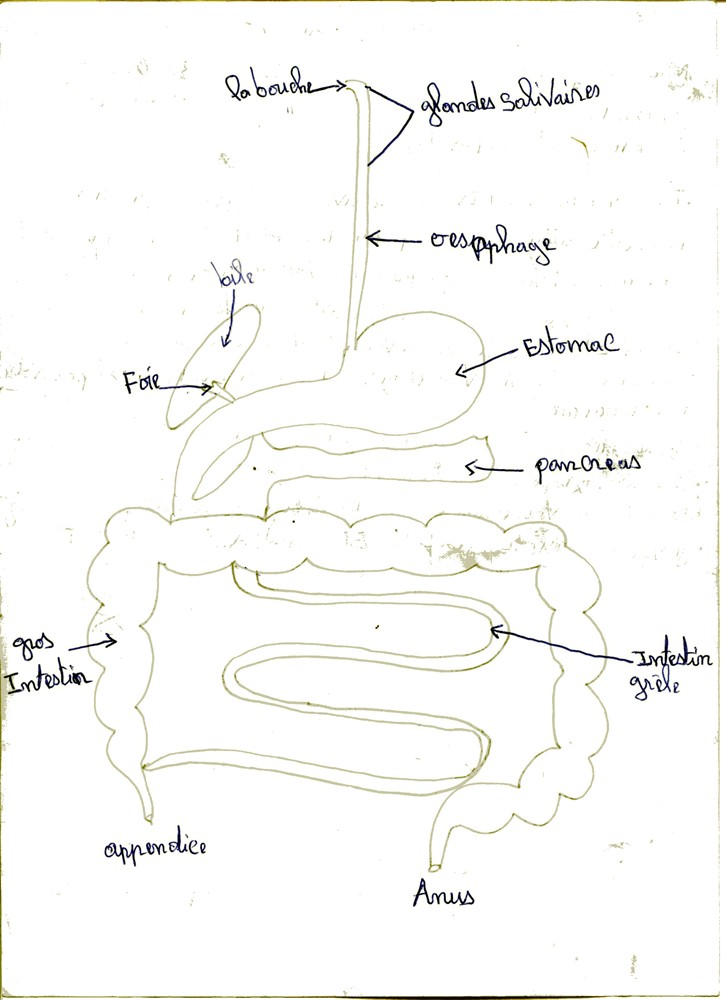 la bouche
glandes salivaires
oesophage
bile
Estomac
Foie
pancreas
gros
Intestin
Intestin
grèle
appendice
Anus